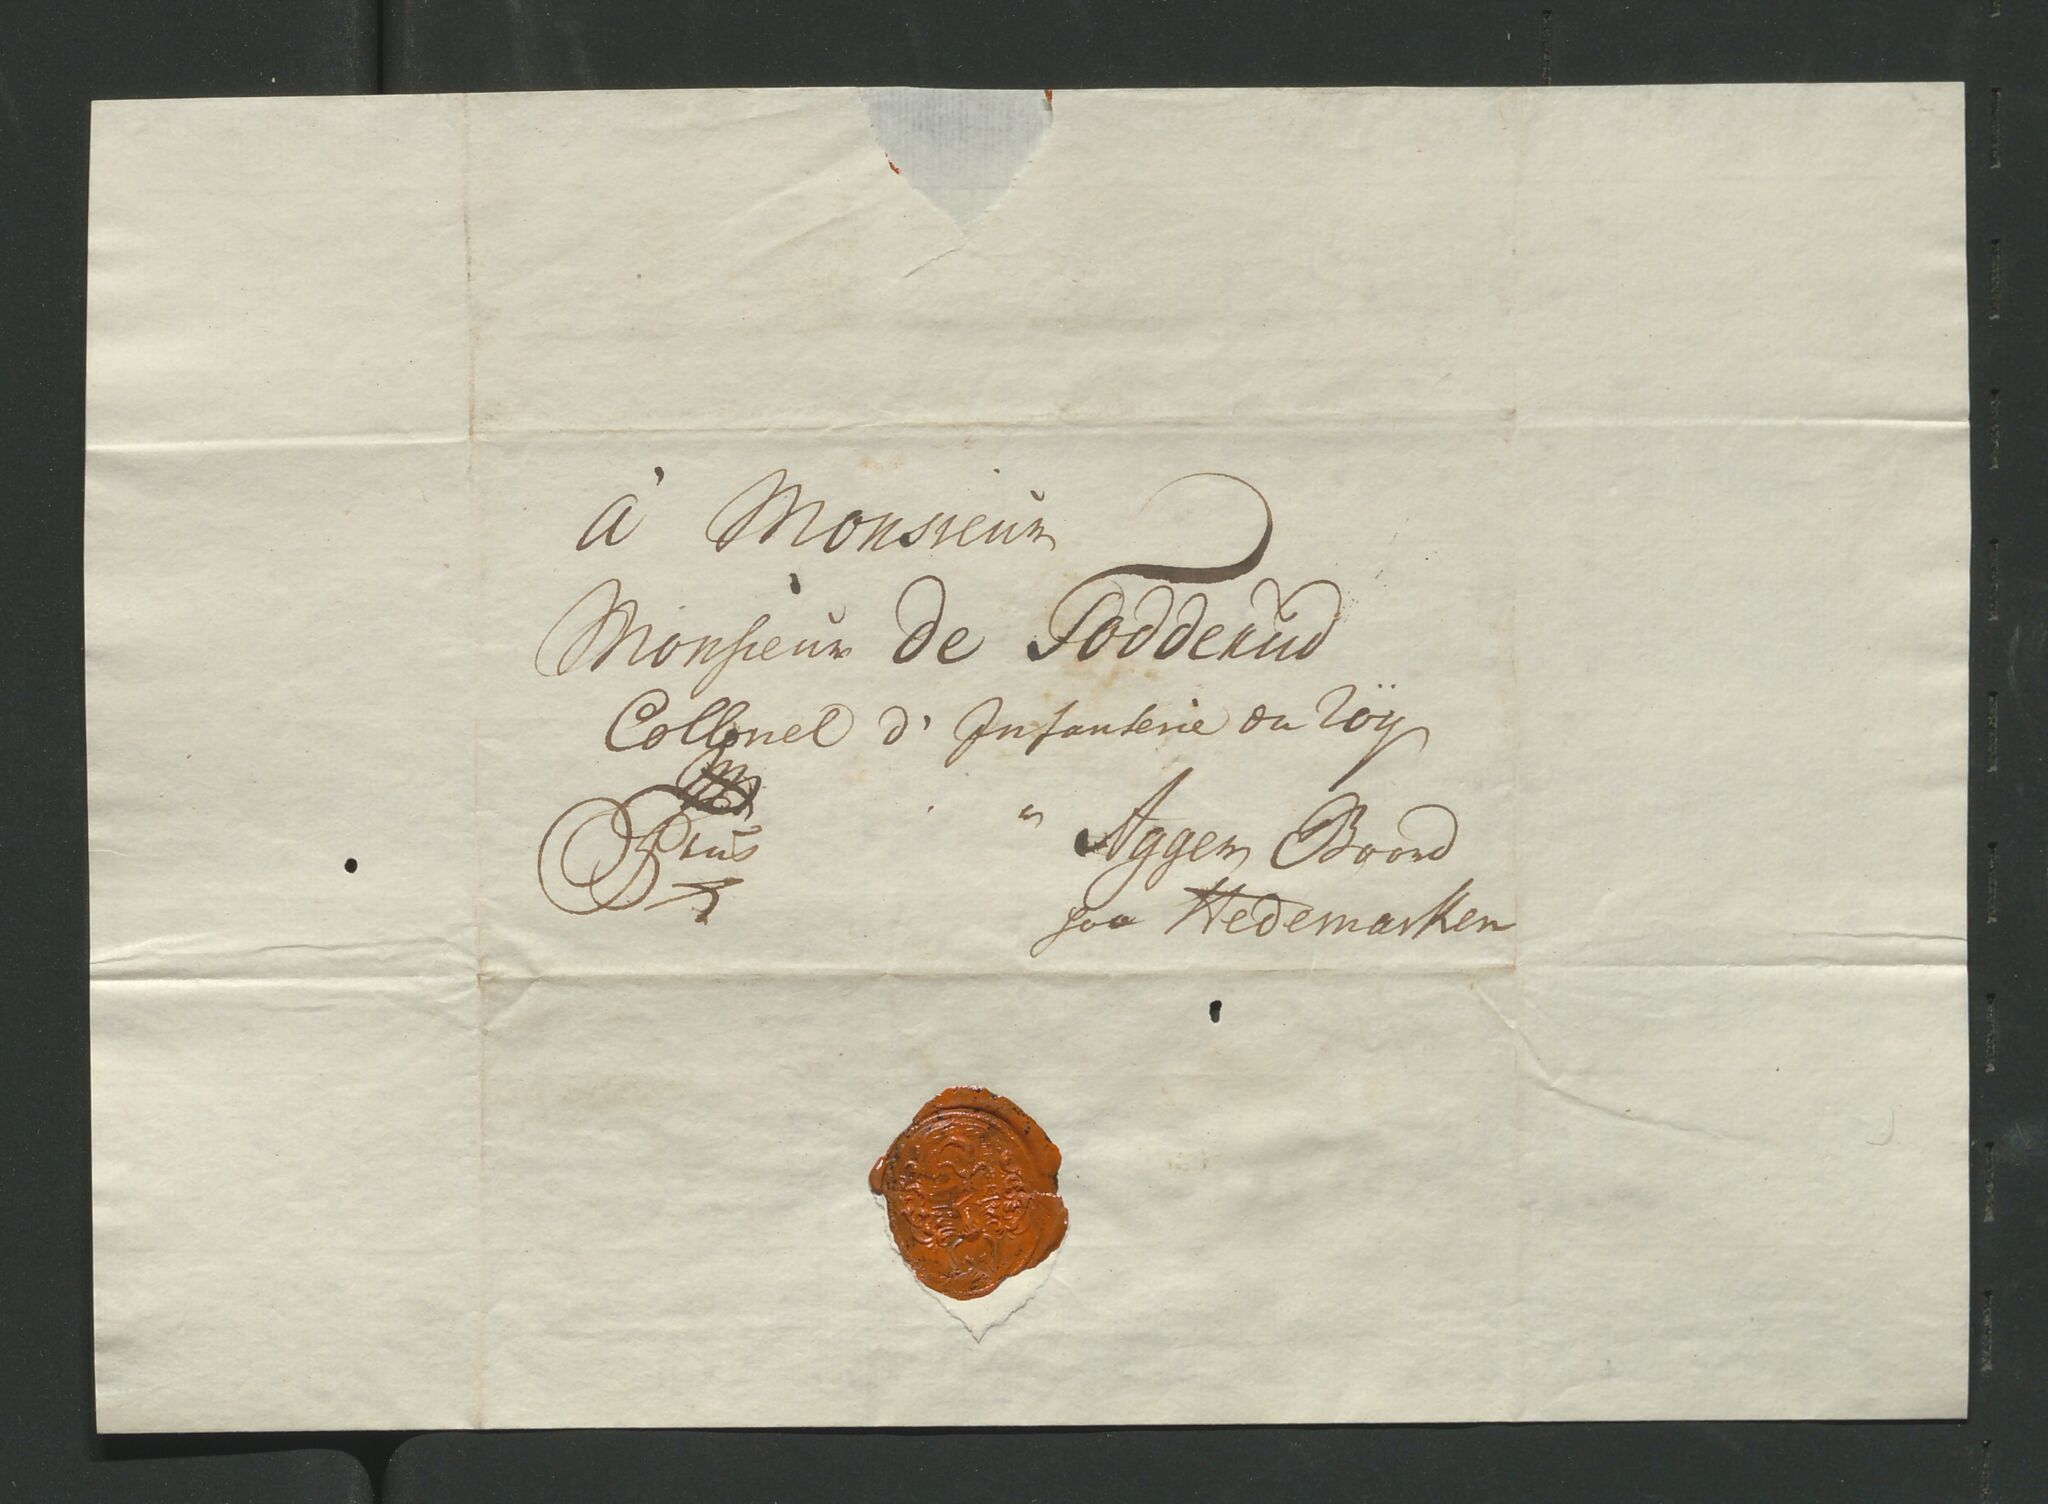 à Monsieur
Monsieur de Todderud
Collonel d' Infanterie du Röy
Aggers Boord
paa Hedemarken